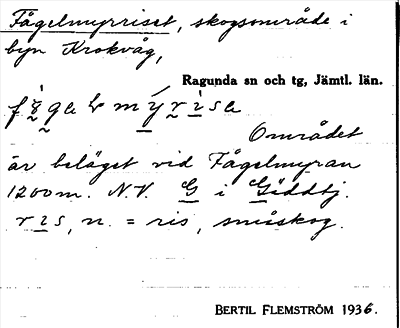 Fågelmyrriset, skogsområde i
byn Krokvåg,
Ragunda sn och tg, Jämtl. län.
Området
är beläget vid Fågelmyran
1200 m. N.V. G i Gäddtj.
r i s, n. = ris, småskog.
BERTIL FLEMSTRÖM 1936.